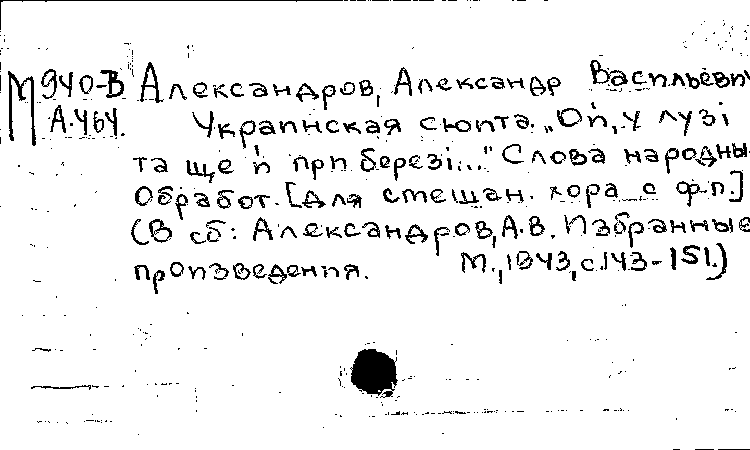 М940-В Александров, Александр Васильеви
А.464. Украинская сюита. „Ой, у лузі
та ще й при березі..." Слова народны
Обработ. [для смешан. хора с ф.п]
(В сб: Александров, А.В. Избранные
произведения. М., 1943, с.143-151.)